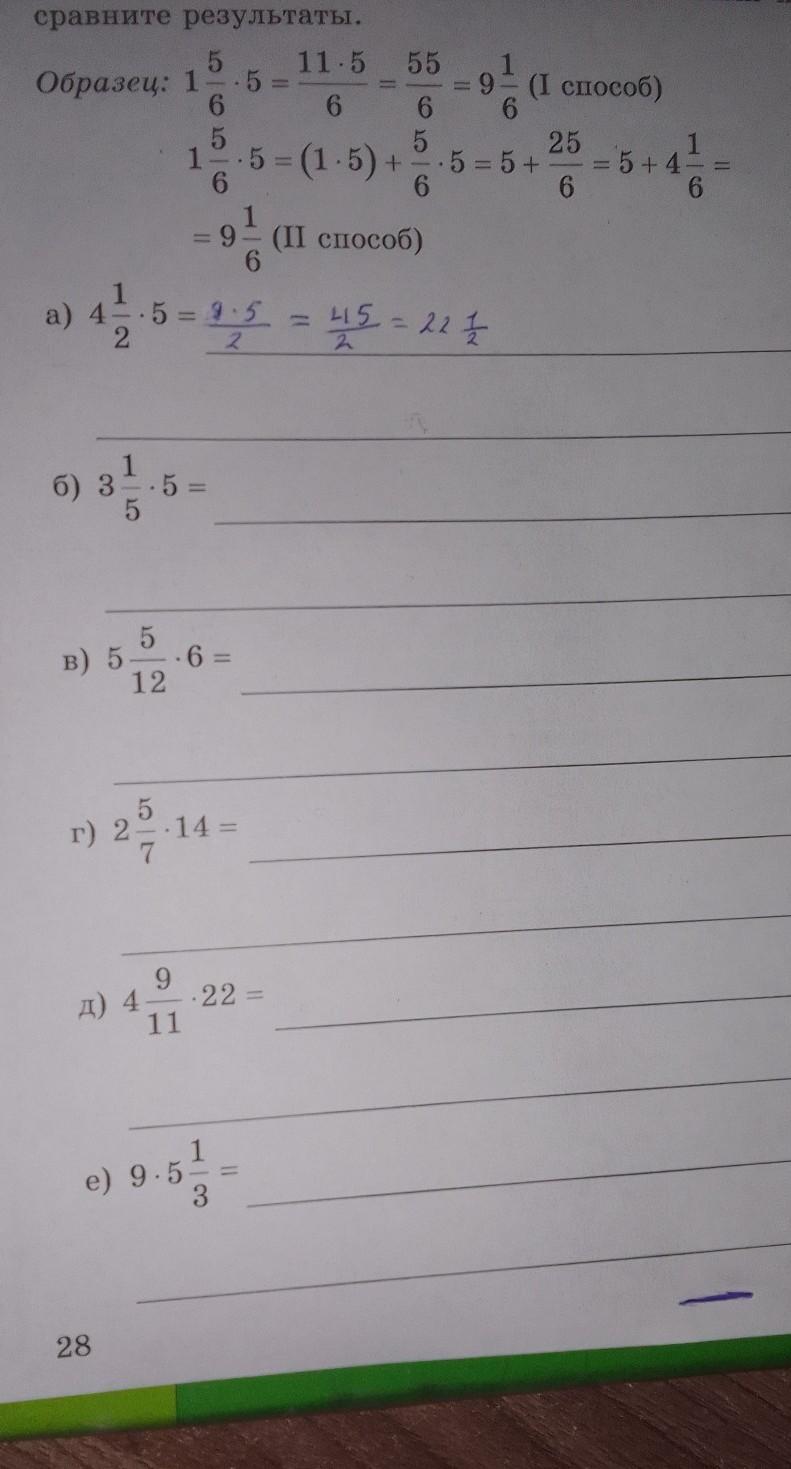 сравните результаты.
Образец: 1 5/6 · 5 = 11 · 5/6 = 55/6 = 9 1/6 (I способ)
1 5/6 · 5 = (1 · 5) + 5/6 · 5 = 5 + 25/6 = 5 + 4 1/6 =
= 9 1/6 (II способ)
а) 4 1/2 · 5 = 9 · 5/2 = 45/2 = 22 1/2
б) 3 1/5 · 5 =
в) 5 5/12 · 6 =
г) 2 5/7 · 14 =
д) 4 9/11 · 22 =
е) 9 · 5 1/3 =
28